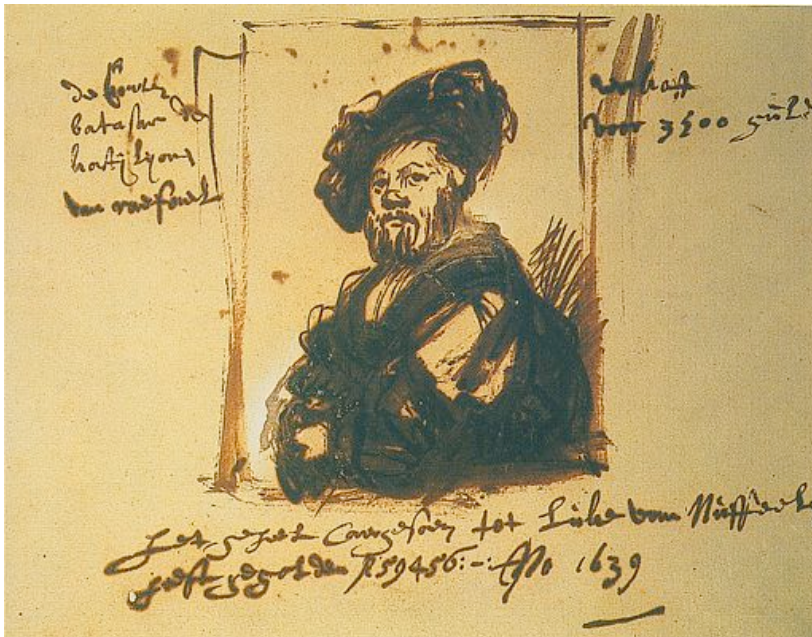 de Conte
batasar de
kastijlijone
van raefael
verkoft
voor 3500 gul
het geheel caergesoen tot Luke van Nuffeele
heeft gegolden f 59456:- Ano 1639